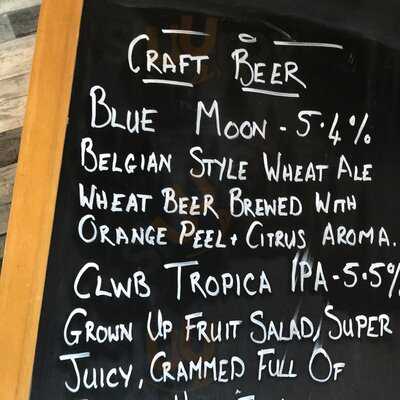 CRAFT BEER
BLUE MOON - 5.4%
BELGIAN STYLE WHEAT ALE
WHEAT BEER BREWED WITH
ORANGE PEEL + CITRUS AROMA.
CLWB TROPICA IPA - 5.5%
GROWN UP FRUIT SALAD, SUPER
JUICY, CRAMMED FULL OF